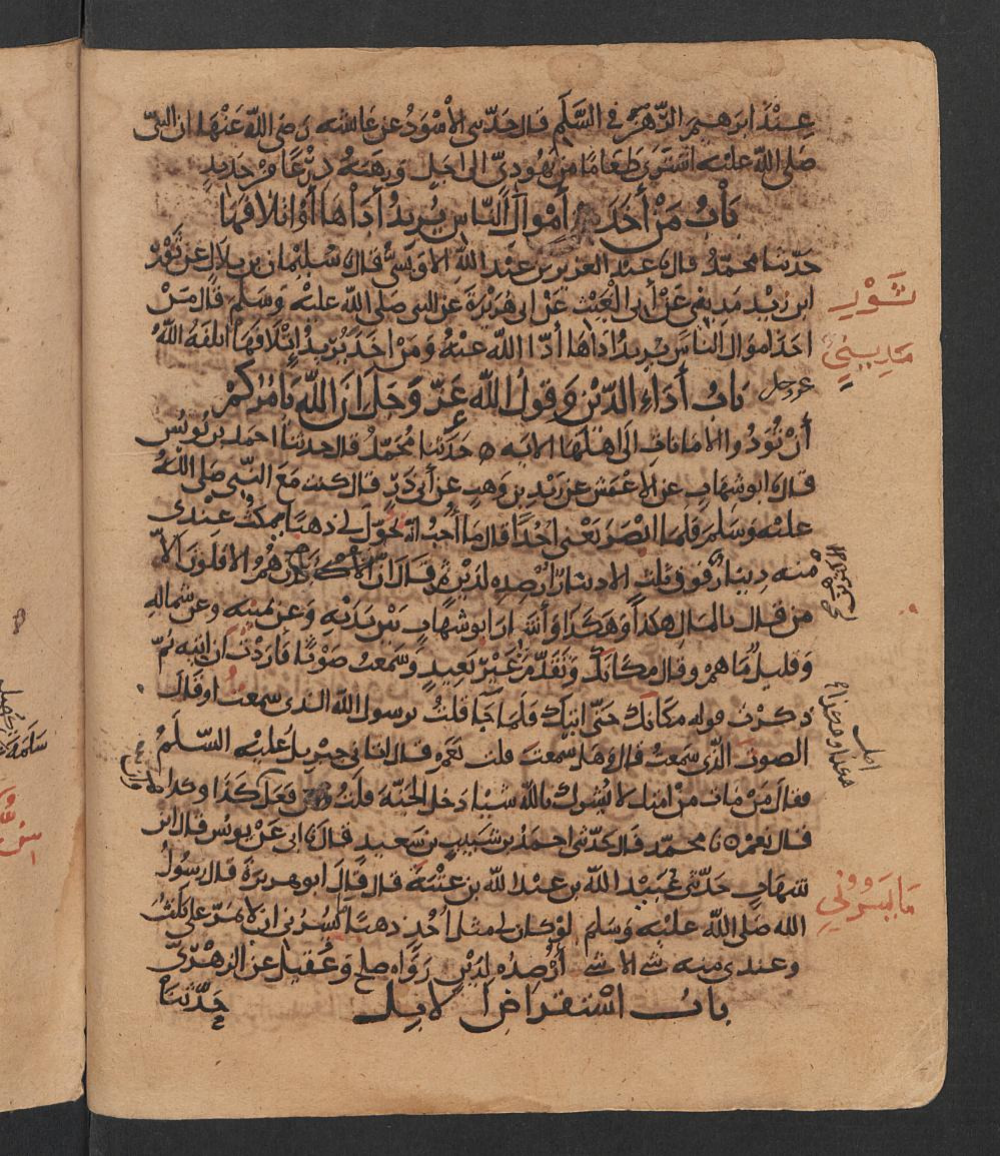 عِنْدَ ابرهيم الرَّهْن في السَّلَم قال حدّثني الأَسْوَدُ عن عائشه رَضي اللّه عَنْهَا ان النبيّ
صَلى اللّه عليه اشتَرَى طَعَامًا من يَهُوديّ الى اجل وَرَهَنَهُ دِرْعًا مِنْ حَديدٍ
بَابُ مَنْ أَخَذَ أَمْوالَ النّاسِ يُرِيدُ أَدَاْهَا أَوْ إتلافَهَا
حَدّثنا محمّدٌ قال عبد العزيز بن عَبْد اللّهِ الاوَيْسيُّ قال سُلَيْمان بن بِلَال عن ثَوْر
ابن زيْد مَديني عَنْ أبي الغَيْث عَنْ ابي هرَيْرةَ عن النبي صَلى اللّه عليْه وَسَلمَ قَال مَنْ
اخذ اموال الناسَ يُريدُ اداها أدّا اللّه عَنْهُ وَمَنْ اخَذ يُرِيدُ إِتْلَافَهَا اتلفَهُ اللّهُ
عز وجل بَابُ أَدَاءِ الدَّيْن وَقولُ اللّه عَزّ وَجَلَ انَ اللّه يَامُرُكمْ
أَنْ تُؤَدُّوا الأمانات الَى اهْلهَا الايَه ۞ حَدّثنا مُحَمّدٌ قال حدثنا احمَد بن يُونُس
قال ابو شهَاب عن الاعْمَش عن زَيْد بن وَهب عَن أَبي ذَرّ قال كنت مَعَ النّبي صَلى اللّهُ
عليْه وَسَلمَ فلما ابْصَرَ يَعْني احُدًا قال ما أُحِبُّ انّه تحوّل لي ذهبًا يمكثُ عِنْدي
مْنه دِينارٌ فوق ثلث الا دينارًا أُرْصدِه لدَيْن ثم قَال انّ الاكثرين هُمُ الاقلونَ الّا
من قال بالمال هكذا وَهَكَذا وَأشَار ابو شهاب بَيْن يَدَيْه وَعَن يمينه وعن شماله
وَقليلٌ مَا هم وقال مكانكَ وَتقَدَّمَ غَيْرَ بَعِيدٍ وَسَمعتُ صَوْتًا فَارَدْتُ ان اتيه ثمّ
ذكرْت قوله مكانك حَتّى اتيك فَلما جَا قلتُ يرسول اللّه الذي سمعت او قال
الصوت الّذي سَمعتُ قال وَهَل سَمعتَ قلت نَعَم قال اتاني جبريل عليْه السّلَامُ
فقالَ مَنْ مَات مِنْ امتك لا يُشرك باللّه شيْا دخل الجَنّة قلْتُ فعَل كَذَا وكذا
قال نعم ۞ محمّد قال حدّثني احمَدُ بن شَبيب بن سَعيد قال ابي عَنْ يونس قال ابن
شِهَاب حَدّثني عُبَيْد اللّه بن عَبْد اللّه بن عُتْبَة قال قالَ ابو هريرَة قال رَسُولُ
اللّه صَلى اللّه عليْه وَسَلم لَوْ كان لي مثل أُحُدٍ ذهبًا يَسُرُني ان لا يمُرّ عليّ ثلثٌ
وعندي منه شَي الا شَي أُرْصِدُه لدَيْن رَوَاه صلح وَعُقيل عن الزهْرِيّ
بَابُ اسْتقراضِ الابِل حَدَّثَنَا
ثَوْرِ
مَدِيِنيّ
الاكثرين
مَا يَسُرُّني
اصل